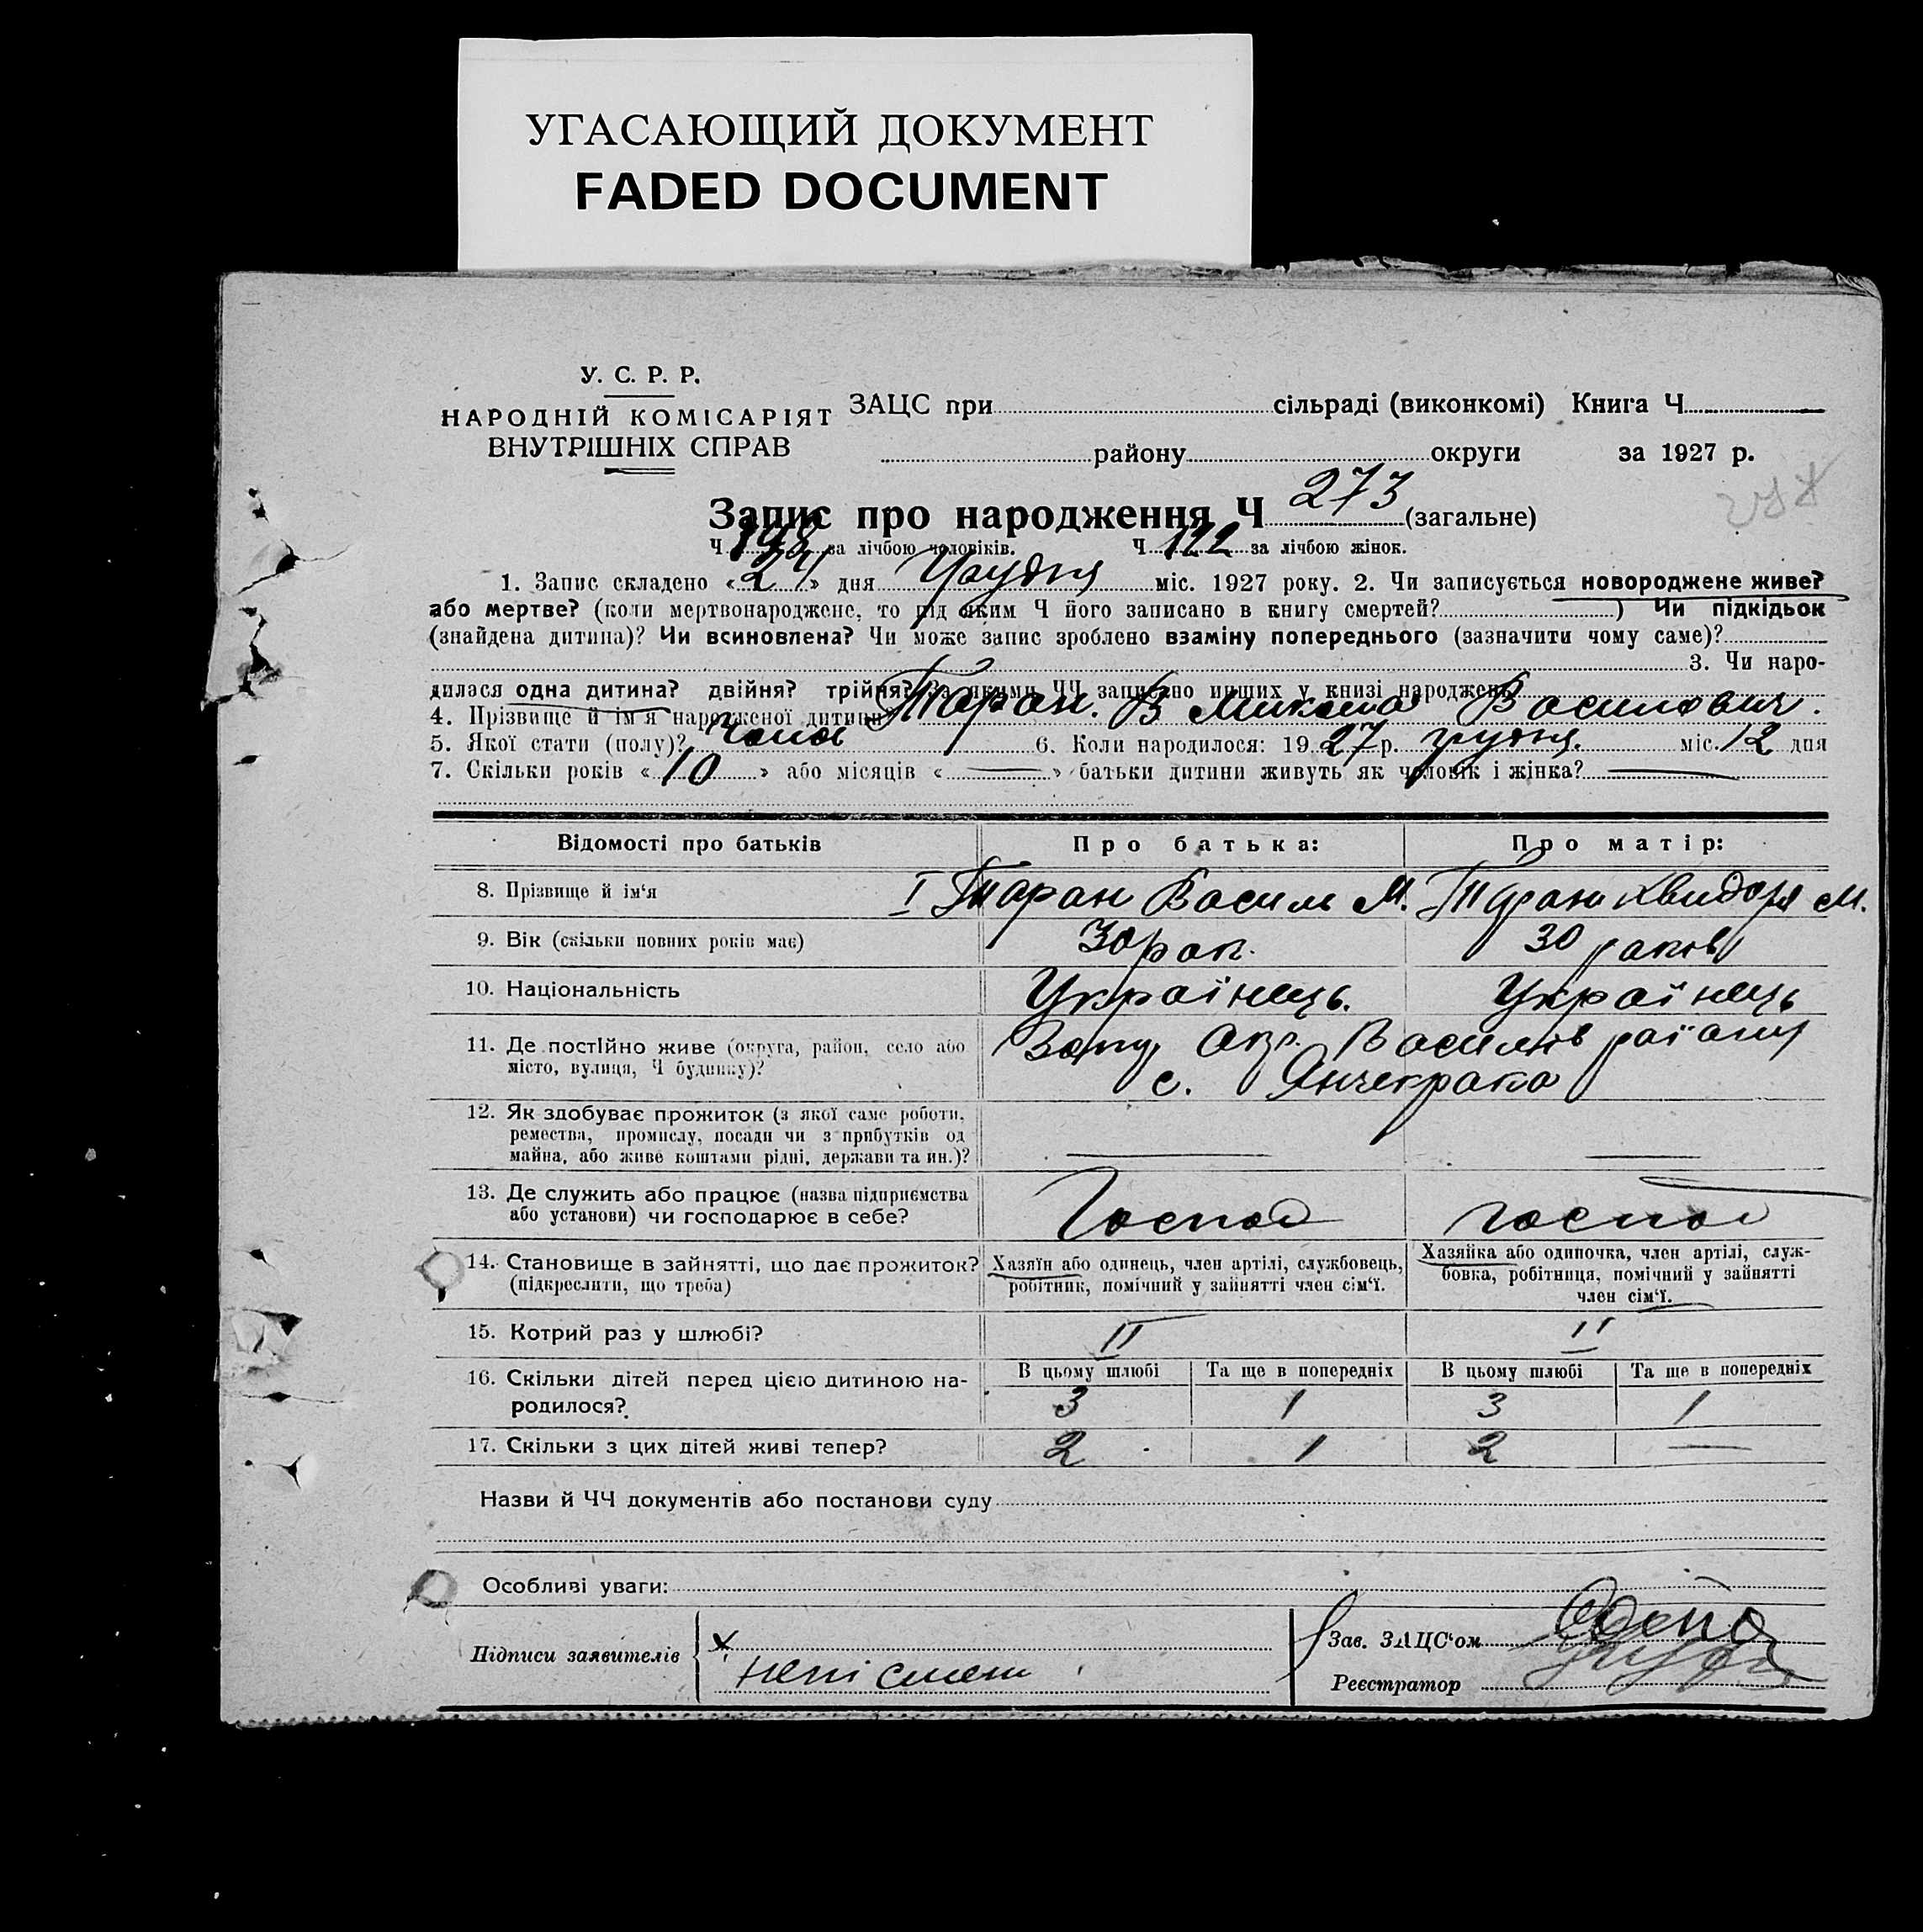 УГАСАЮЩИЙ ДОКУМЕНТ
FADED DOCUMENT
У. С. Р. Р.
НАРОДНІЙ КОМІСАРІЯТ
ВНУТРІШНІХ СПРАВ
ЗАЦС при сільраді (виконкомі) Книга Ч
району округи за 1927 р.
Запис про народження Ч 273 (загальне)
Ч за лічбою чоловіків. Ч 122 за лічбою жінок.
1. Запис складено «24» дня Грудня міс. 1927 року. 2. Чи записується новороджене живе?
або мертве? (коли мертвонароджене, то під яким Ч його записано в книгу смертей? ) Чи підкідьок
(знайдена дитина)? Чи всиновлена? Чи може запис зроблено взаміну попереднього (зазначити чому саме)?
3. Чи наро-
дилася одна дитина? двійня? трійня? За якими ЧЧ записано инших у книзі народжень
4. Прізвище й ім'я народженої дитини? Таран. В Микола Василович.
5. Якої стати (полу)? Чоло 6. Коли народилося: 1927 р. грудня міс. 12 дня
7. Скільки років «10» або місяців « — » батьки дитини живуть як чоловік і жінка? —
Відомості про батьків Про батька: Про матір:
8. Прізвище й ім'я I Таран Василь М. Таран М.
9. Вік (скільки повних років має) 30 рок. 30 років
10. Національність Українець. Українець
11. Де постійно живе (округа, район, село або Запор Окр. Василів району
місто, вулиця, Ч будинку)? с. Янчекрака
12. Як здобуває прожиток (з якої саме роботи,
ремества, промислу, посади чи з прибутків од
майна, або живе коштами рідні, держави та ин.)? — —
13. Де служить або працює (назва підприємства
або установи) чи господарює в себе? Господ господ
14. Становище в зайнятті, що дає прожиток?
(підкреслити, що треба)
Хазяїн або одинець, член артілі, службовець,
робітник, помічний у зайнятті член сім'ї.
Хазяйка або одиночка, член артілі, служ-
бовка, робітниця, помічний у зайнятті
член сім'ї.
15. Котрий раз у шлюбі? II II
16. Скільки дітей перед цією дитиною на-
родилося?
В цьому шлюбі Та ще в попередніх В цьому шлюбі Та ще в попередніх
3 1 3 1
17. Скільки з цих дітей живі тепер? 2 1 2 —
Назви й ЧЧ документів або постанови суду
Особливі уваги:
Підписи заявителів х
непісмен
Зав. ЗАЦС'ом
Реєстратор